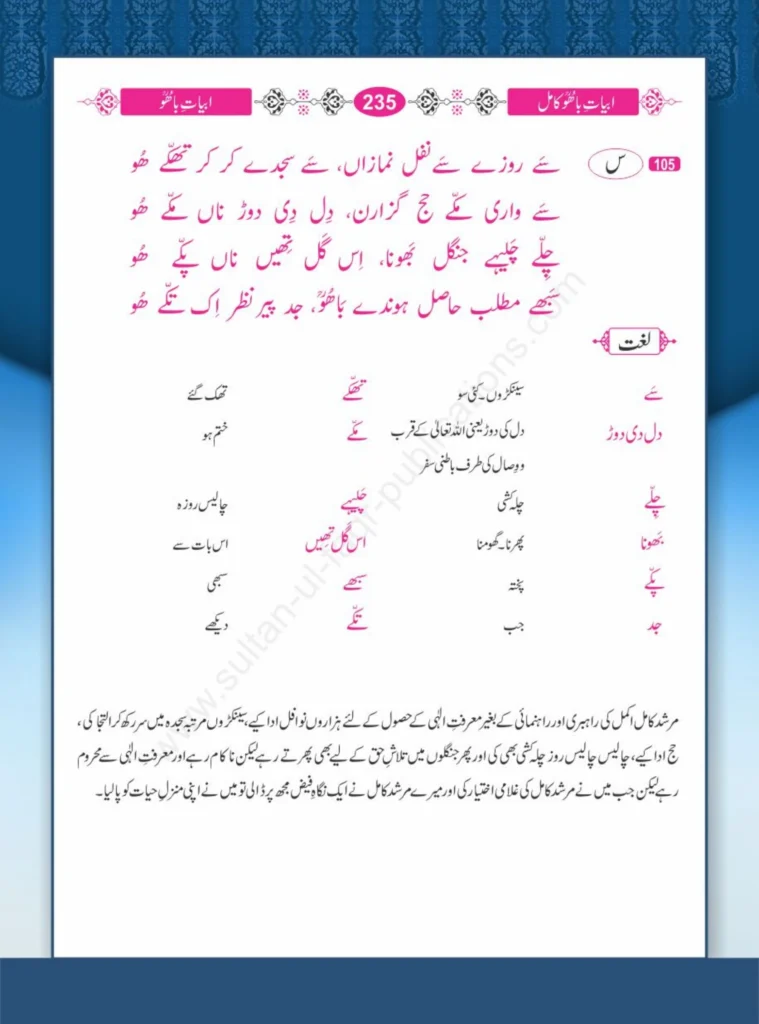 ابیاتِ باھُوؒ کامل
235
ابیاتِ باھُوؒ
105
س
سَے روزے سَے نفل نمازاں، سَے سجدے کر کر تھکّے ھُو
سَے واری مکّے حج گزارن، دِل دِی دوڑ ناں مکّے ھُو
چِلّے چَلیہے جنگل بَھونا، اِس گَل تِھیں ناں پکّے ھُو
سَبھے مطلب حاصل ہوندے بَاھُوؒ، جد پیر نظر اِک تکّے ھُو
لغت
سَے سینکڑوں۔ کئی سو تھکّے تھک گئے
دل دی دوڑ دل کی دوڑ یعنی اللہ تعالیٰ کے قرب مکّے ختم ہو
و وصال کی طرف باطنی سفر
چِلّے چلہ کشی چَلیہے چالیس روزہ
بَھونا پھرنا۔ گھومنا اس گَل تِھیں اس بات سے
پکّے پختہ سبھے سبھی
جد جب تکّے دیکھے
مرشد کامل اکمل کی راہبری اور راہنمائی کے بغیر معرفتِ الٰہی کے حصول کے لئے ہزاروں نوافل ادا کیے، سینکڑوں مرتبہ سجدہ میں سر رکھ کر التجا کی،
حج ادا کیے، چالیس چالیس روز چلہ کشی بھی کی اور پھر جنگلوں میں تلاشِ حق کے لیے بھی پھرتے رہے لیکن ناکام رہے اور معرفتِ الٰہی سے محروم
رہے لیکن جب میں نے مرشد کامل کی غلامی اختیار کی اور میرے مرشد کامل نے ایک نگاہِ فیض مجھ پر ڈالی تو میں نے اپنی منزلِ حیات کو پا لیا۔
www.sultan-ul-faqr-publications.com